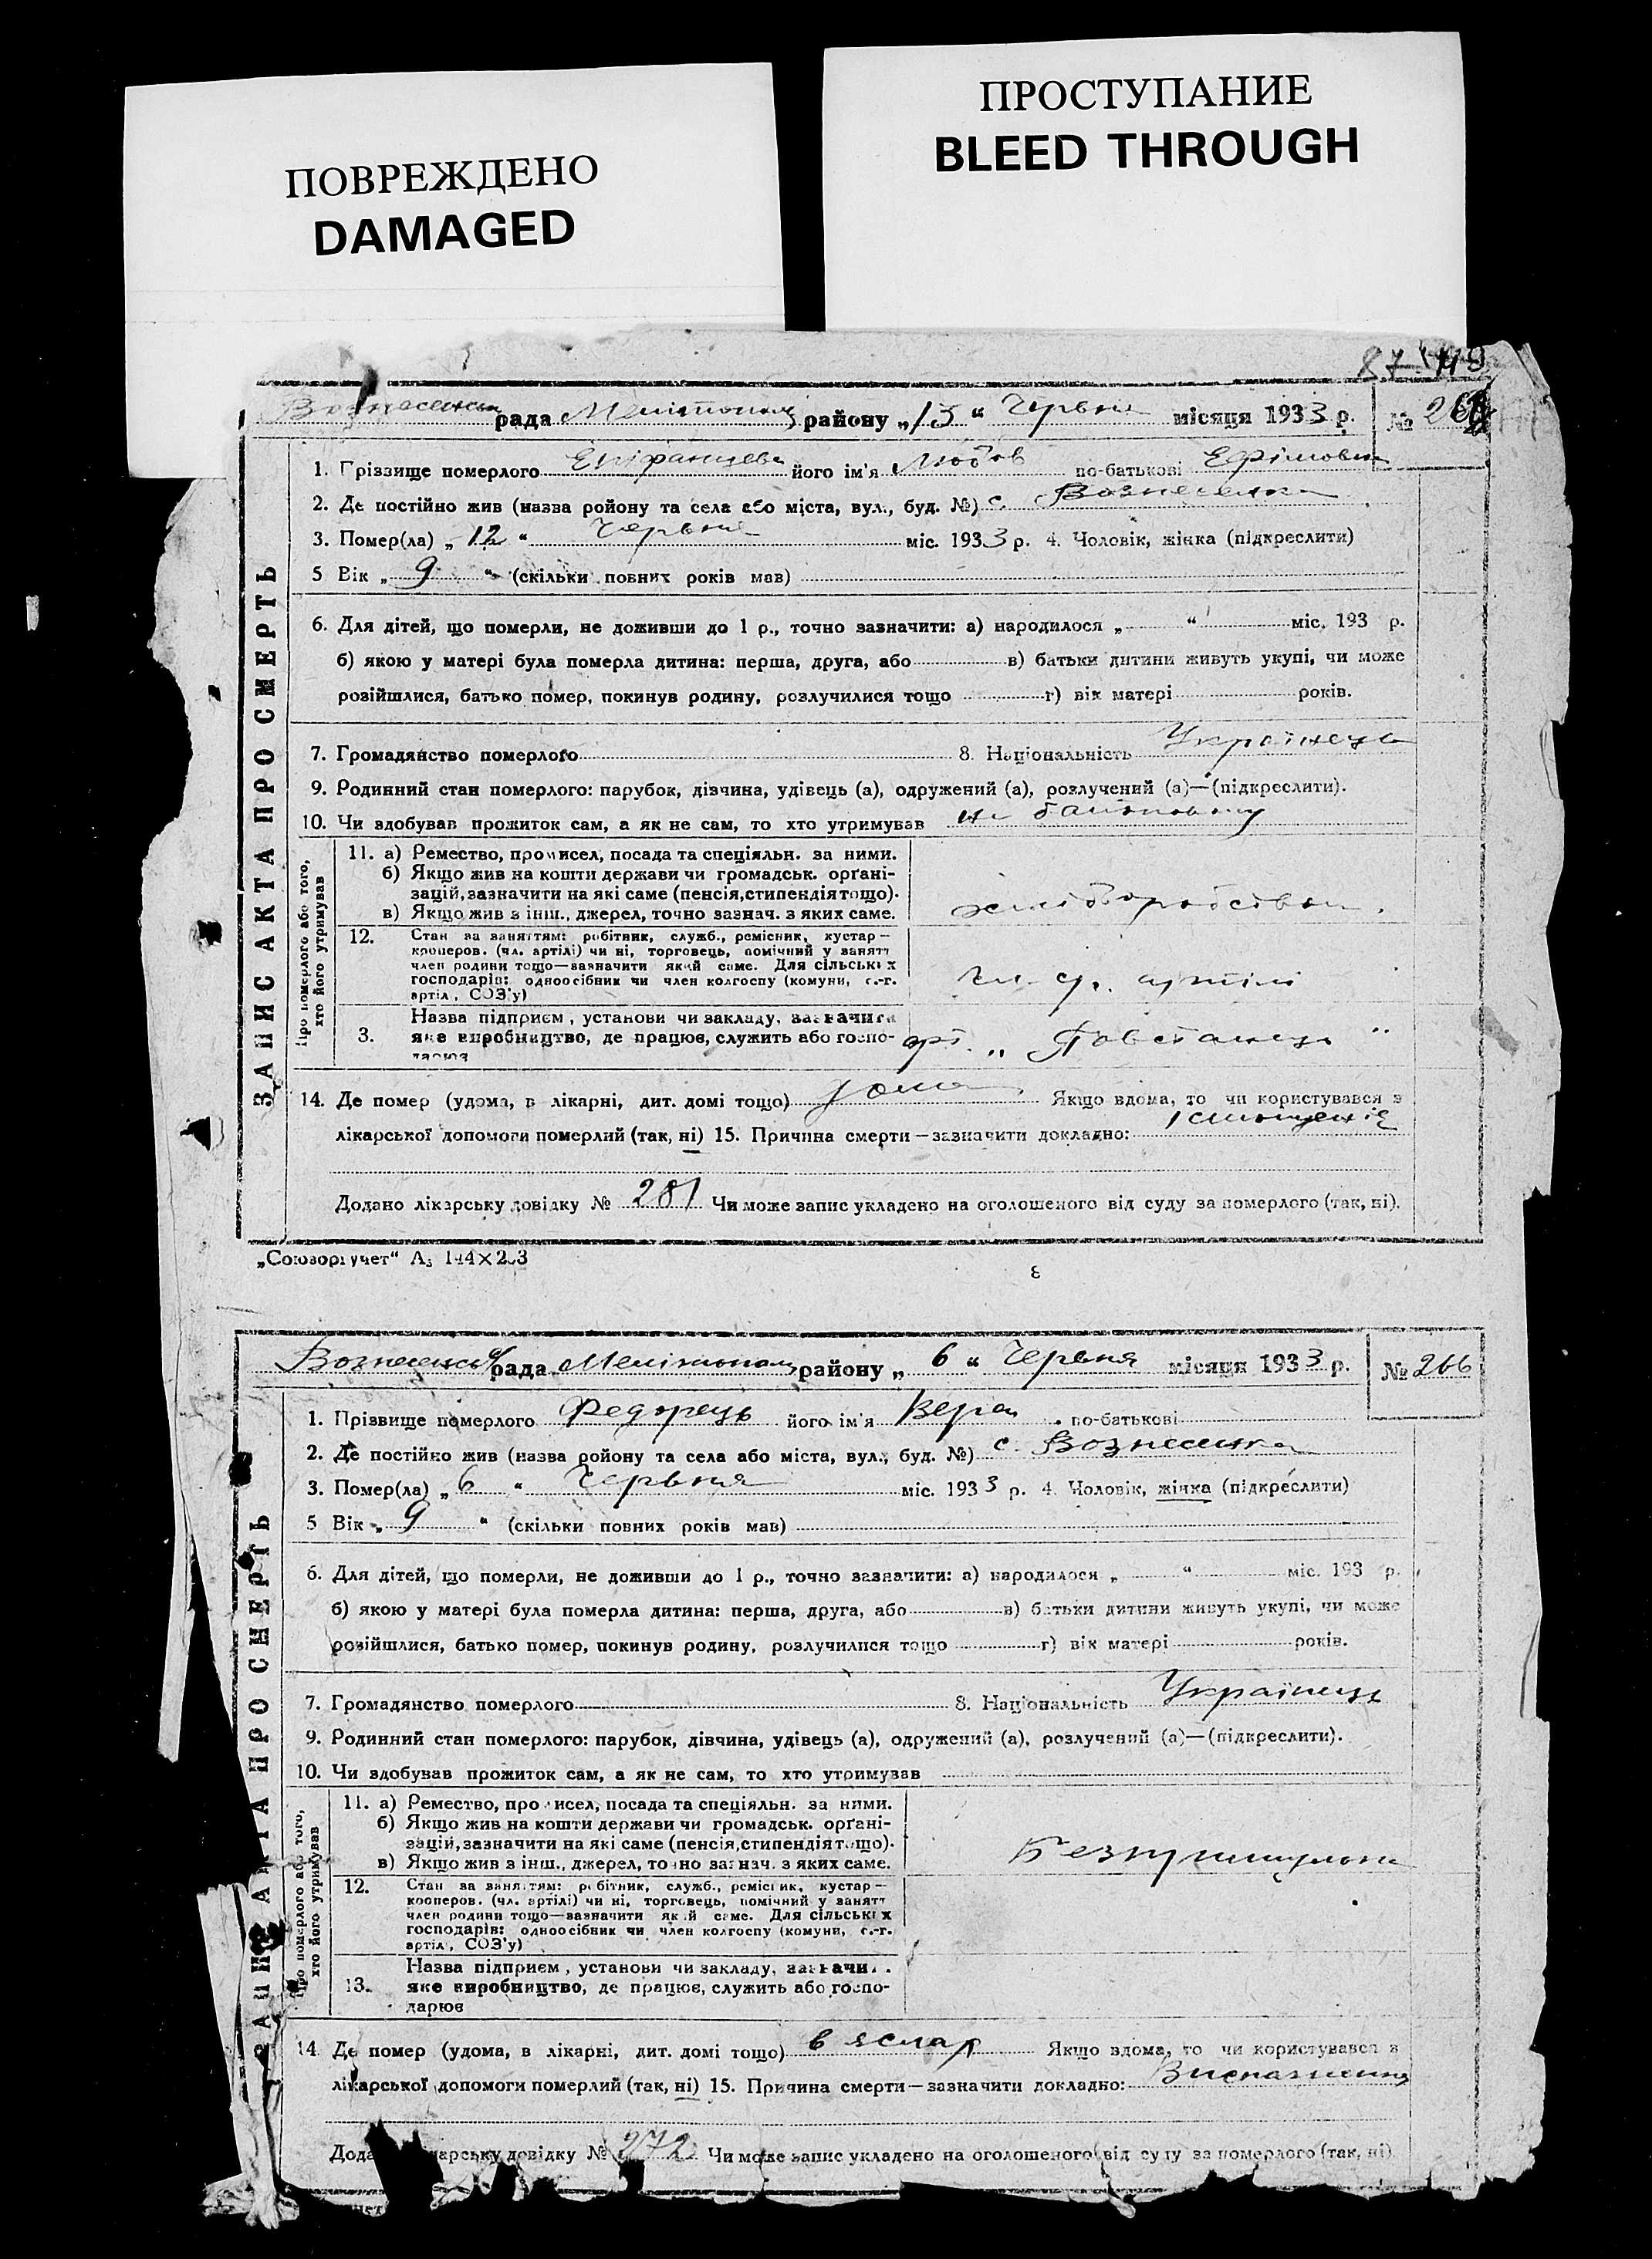 ПОВРЕЖДЕНО
DAMAGED
ПРОСТУПАНИЕ
BLEED THROUGH
ЗАПИС АКТА ПРО СМЕРТЬ
рада Мелітопол району „13“ Червня місяця 1933 р. №
1. Прізвище померлого Епіфанцева його ім'я Любов по-батькові Ефімовна
2. Де постійно жив (назва ройону та села або міста, вул., буд. №) с. Вознесенка
3. Помер(ла) „12“ Червня міс. 1933 р. 4. Чоловік, жінка (підкреслити)
5 Вік „9“ (скільки повних років мав)
6. Для дітей, що померли, не доживши до 1 р., точно зазначити: а) народилося „ “ міс. 193 р.
б) якою у матері була померла дитина: перша, друга, або в) батьки дитини живуть укупі, чи може
розійшлися, батько помер, покинув родину, розлучилися тощо г) вік матері років.
7. Громадянство померлого 8. Національність Українець
9. Родинний стан померлого: парубок, дівчина, удівець (а), одружений (а), розлучений (а)—(підкреслити).
10. Чи здобував прожиток сам, а як не сам, то хто утримував
Про померлого або того, хто його утримував
11. а) Ремество, промисел, посада та спеціяльн. за ними.
б) Якщо жив на кошти держави чи громадськ. орґані-
зацій, зазначити на які саме (пенсія, стипендія тощо).
в) Якщо жив з інш., джерел, точно зазнач. з яких саме.
хліборобство
12. Стан за заняттям: робітник, служб., ремісник, кустар—
кооперов. (чл. артілі) чи ні, торговець, помічний у занятт
член родини тощо—зазначити який саме. Для сільських
господарів: одноосібник чи член колгоспу (комуни, с.-г.
артіл, СОЗ'у)
чл. с. артілі
3. Назва підприєм, установи чи закладу, зазначити
яке виробництво, де працює, служить або госпо-
дарює
арт. „Повстанець“
14. Де помер (удома, в лікарні, дит. домі тощо) дома Якщо вдома, то чи користувався з
лікарської допомоги померлий (так, ні) 15. Причина смерти—зазначити докладно: істощеніє
Додано лікарську довідку № 281 Чи може запис укладено на оголошеного від суду за померлого (так, ні).
„Союзоргучет“
ЗАПИС АКТА ПРО СМЕРТЬ
рада Мелітопол району „6“ Червня місяця 1933 р. № 266
1. Прізвище померлого Федорець його ім'я Вера по-батькові
2. Де постійно жив (назва ройону та села або міста, вул., буд. №) с. Вознесенка
3. Помер(ла) „6“ Червня міс. 1933 р. 4. Чоловік, жінка (підкреслити)
5 Вік „9“ (скільки повних років мав)
6. Для дітей, що померли, не доживши до 1 р., точно зазначити: а) народилося „ “ міс. 193 р.
б) якою у матері була померла дитина: перша, друга, або в) батьки дитини живуть укупі, чи може
розійшлися, батько помер, покинув родину, розлучилися тощо г) вік матері років.
7. Громадянство померлого 8. Національність Українець
9. Родинний стан померлого: парубок, дівчина, удівець (а), одружений (а), розлучений (а)—(підкреслити).
10. Чи здобував прожиток сам, а як не сам, то хто утримував
Про померлого або того, хто його утримував
11. а) Ремество, промисел, посада та спеціяльн. за ними.
б) Якщо жив на кошти держави чи громадськ. орґані-
зацій, зазначити на які саме (пенсія, стипендія тощо).
в) Якщо жив з інш., джерел, точно зазнач. з яких саме.
12. Стан за заняттям: робітник, служб., ремісник, кустар—
кооперов. (чл. артілі) чи ні, торговець, помічний у занятт
член родини тощо—зазначити який саме. Для сільських
господарів: одноосібник чи член колгоспу (комуни, с.-г.
артіл, СОЗ'у)
13. Назва підприєм, установи чи закладу, зазначи
яке виробництво, де працює, служить або госпо-
дарює
14. Де помер (удома, в лікарні, дит. домі тощо) в яслях Якщо вдома, то чи користувався з
лікарської допомоги померлий (так, ні) 15. Причина смерти—зазначити докладно: Виснаження
довідку № 272 Чи може запис укладено на оголошеного від суду за померлого (так, ні)